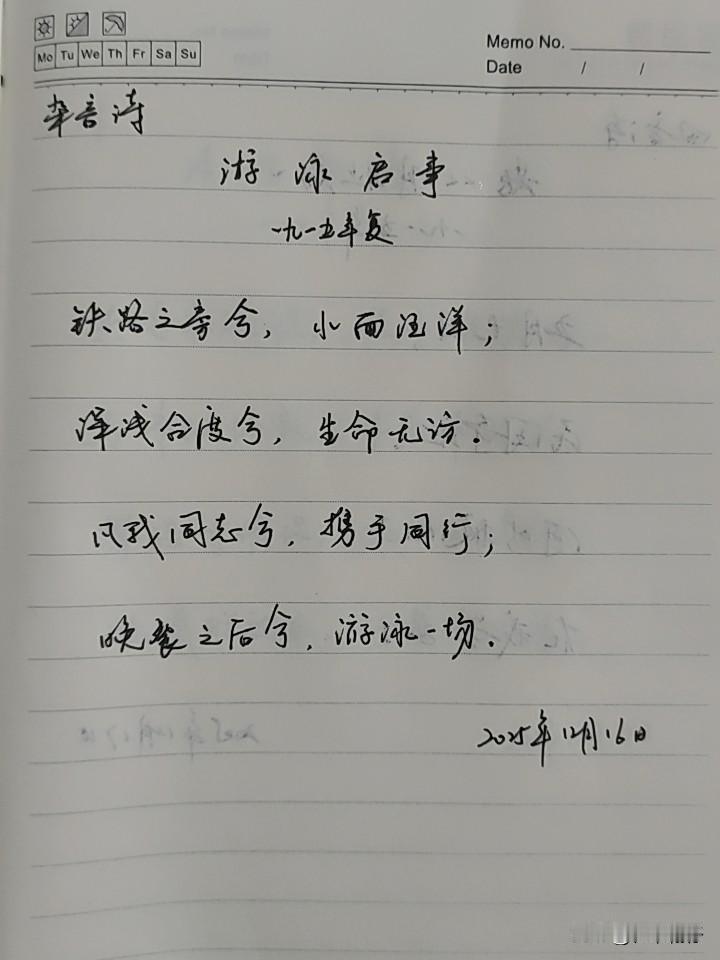 Mo Tu We Th Fr Sa Su
Memo No.
Date / /
杂言诗
游泳启事
一九一五年夏
铁路之旁兮，水面汪洋；
深浅合度兮，生命无妨。
凡我同志兮，携手同行；
晚餐之后兮，游泳一场。
2025年12月16日